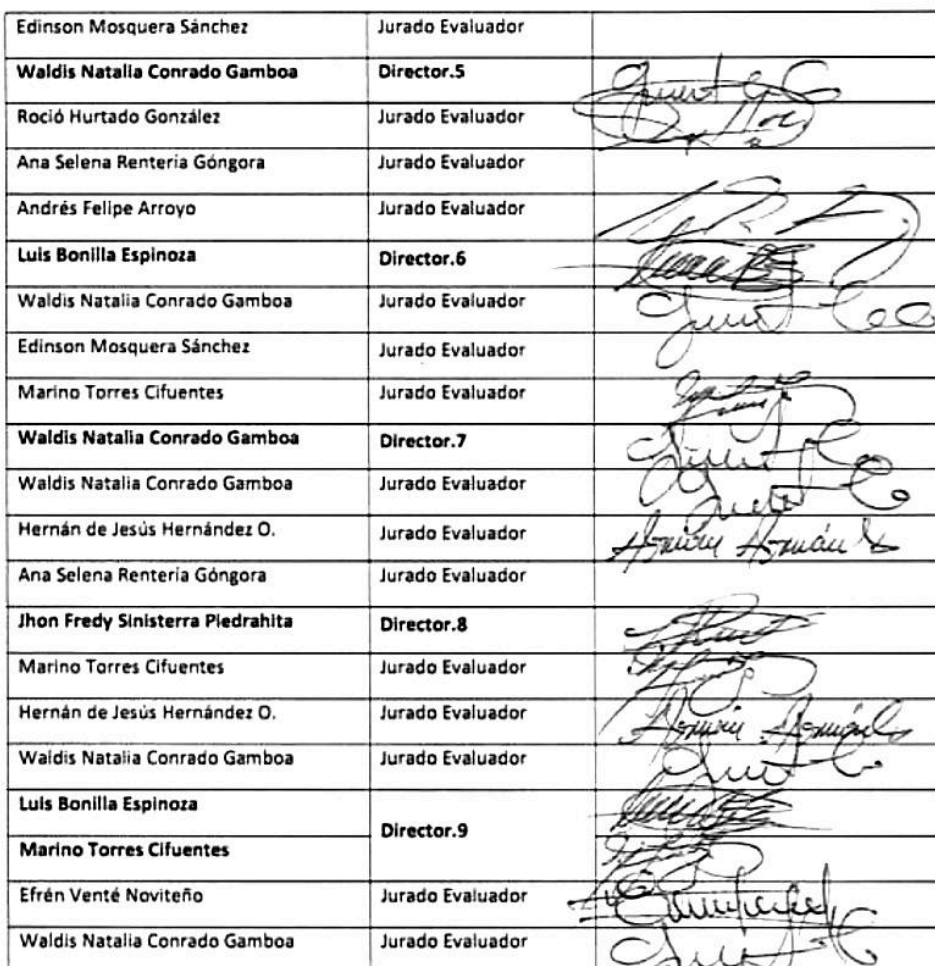 Edinson Mosquera Sánchez Jurado Evaluador
Waldis Natalia Conrado Gamboa Director.5
Roció Hurtado González Jurado Evaluador
Ana Selena Rentería Góngora Jurado Evaluador
Andrés Felipe Arroyo Jurado Evaluador
Luis Bonilla Espinoza Director.6
Waldis Natalia Conrado Gamboa Jurado Evaluador
Edinson Mosquera Sánchez Jurado Evaluador
Marino Torres Cifuentes Jurado Evaluador
Waldis Natalia Conrado Gamboa Director.7
Waldis Natalia Conrado Gamboa Jurado Evaluador
Hernán de Jesús Hernández O. Jurado Evaluador
Ana Selena Rentería Góngora Jurado Evaluador
Jhon Fredy Sinisterra Piedrahita Director.8
Marino Torres Cifuentes Jurado Evaluador
Hernán de Jesús Hernández O. Jurado Evaluador
Waldis Natalia Conrado Gamboa Jurado Evaluador
Luis Bonilla Espinoza
Director.9
Marino Torres Cifuentes
Efrén Venté Noviteño Jurado Evaluador
Waldis Natalia Conrado Gamboa Jurado Evaluador